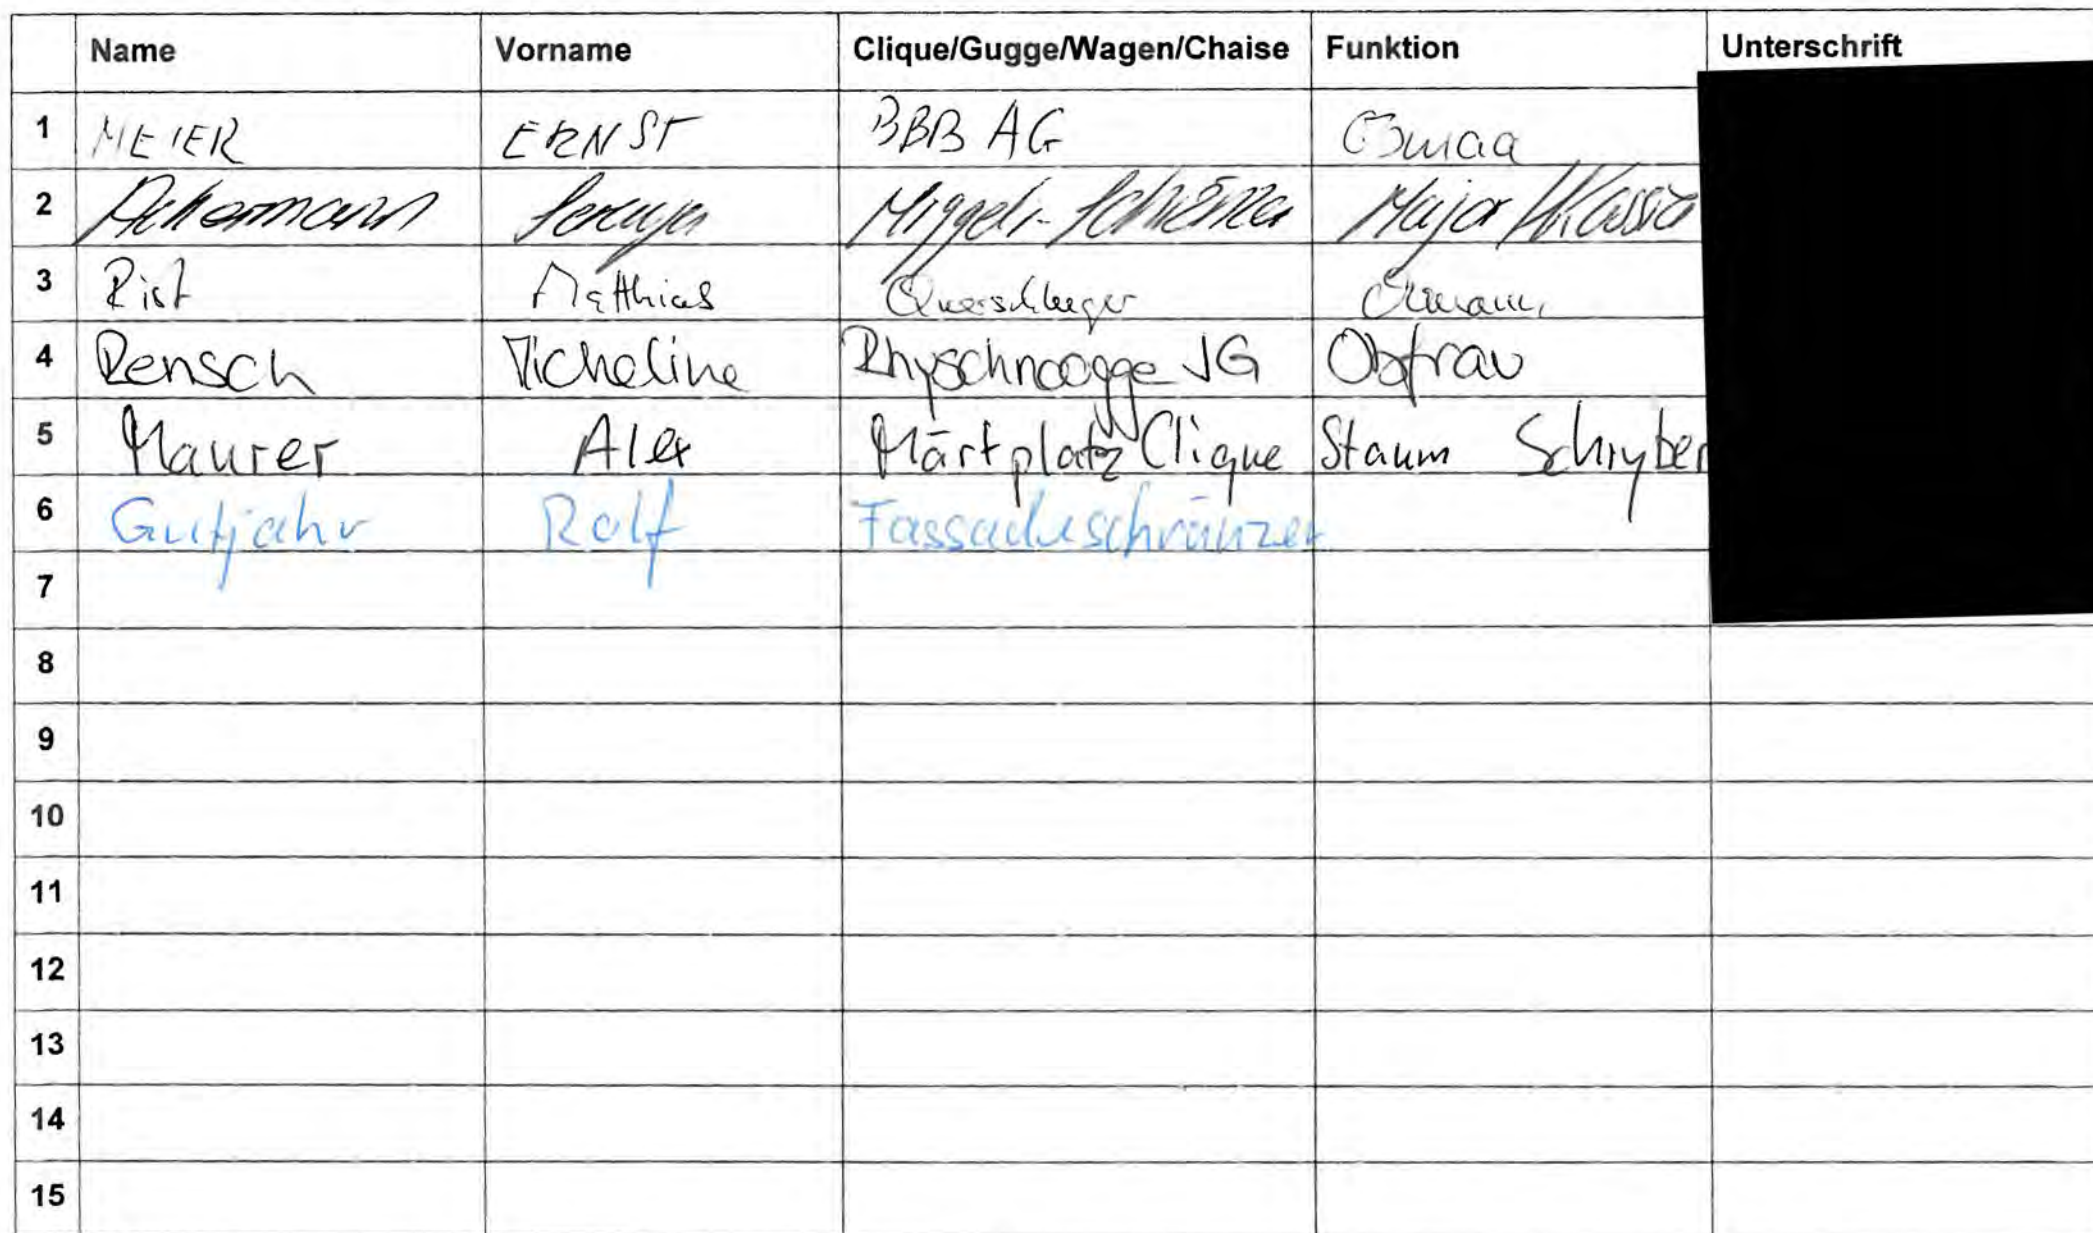 Name Vorname Clique/Gugge/Wagen/Chaise Funktion Unterschrift
1 MEIER ERNST BBB AG Obmaa
2 Ackermann Major
3 Rist Matthias Querschleger Obmann
4 Rensch Micheline Rhyschnoogge JG Obfrau
5 Maurer Alex Märtplatz Clique Stamm Schryber
6 Gutjahr Rolf Fassadeschränzer
7
8
9
10
11
12
13
14
15